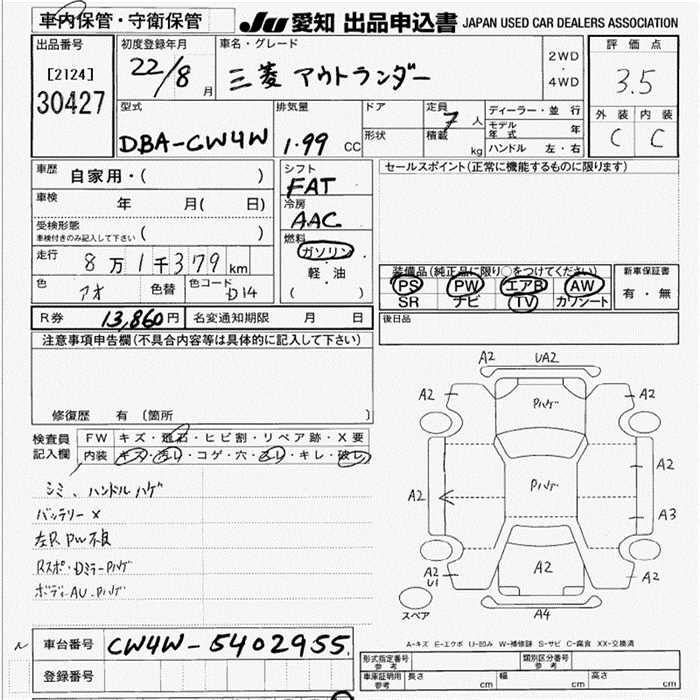 車内保管・守衛保管
JU 愛知 出品申込書 JAPAN USED CAR DEALERS ASSOCIATION
出品番号
[2124]
30427
初度登録年月
22/8 月
車名・グレード
三菱 アウトランダー
2WD
・
4WD
評価点
3.5
外装 内装
C C
型式
DBA-CW4W
排気量
1.99 CC
ドア
形状
定員 7 人
積載 kg
ディーラー・並行
モデル年式 年
ハンドル 左・右
車歴 自家用・( )
車検 年 月( 日)
受検形態
車検付きのみ記入して下さい ( )
走行 8万1千379km
色 アオ 色替 色コード D14
シフト
FAT
冷房
AAC
燃料
ガソリン
・
軽・油
( )
セールスポイント(正常に機能するものに限ります)
装備品(純正品に限り○をつけてください)
PS PW エアB AW
SR ナビ TV カワシート
新車保証書
有・無
R券 13,860円 名変通知期限 月 日
後日品
注意事項申告欄(不具合内容等は具体的に記入して下さい)
修復歴 有 〔箇所 〕
検査員
記入欄
FW キズ・飛石・ヒビ割・リペア跡・X要
内装 キズ・汚れ・コゲ・穴・スレ・キレ・破レ
シミ、ハンドルハゲ
バッテリーX
左R PW不良
Rスポ・Dミラーハゲ
ボディAU・ハゲ
A2 UA2
A2 ハゲ A2
A2
A2 ハゲ A3
A2 A2 A2
U1
スペア
A4
A-キズ E-エクボ U-凹み W-補修跡 S-サビ C-腐食 XX-交換済
車台番号 CW4W-5402955
登録番号
形式指定番号
参考
類別区分番号
参考
車庫証明用
参考
長さ cm 幅 cm 高さ cm